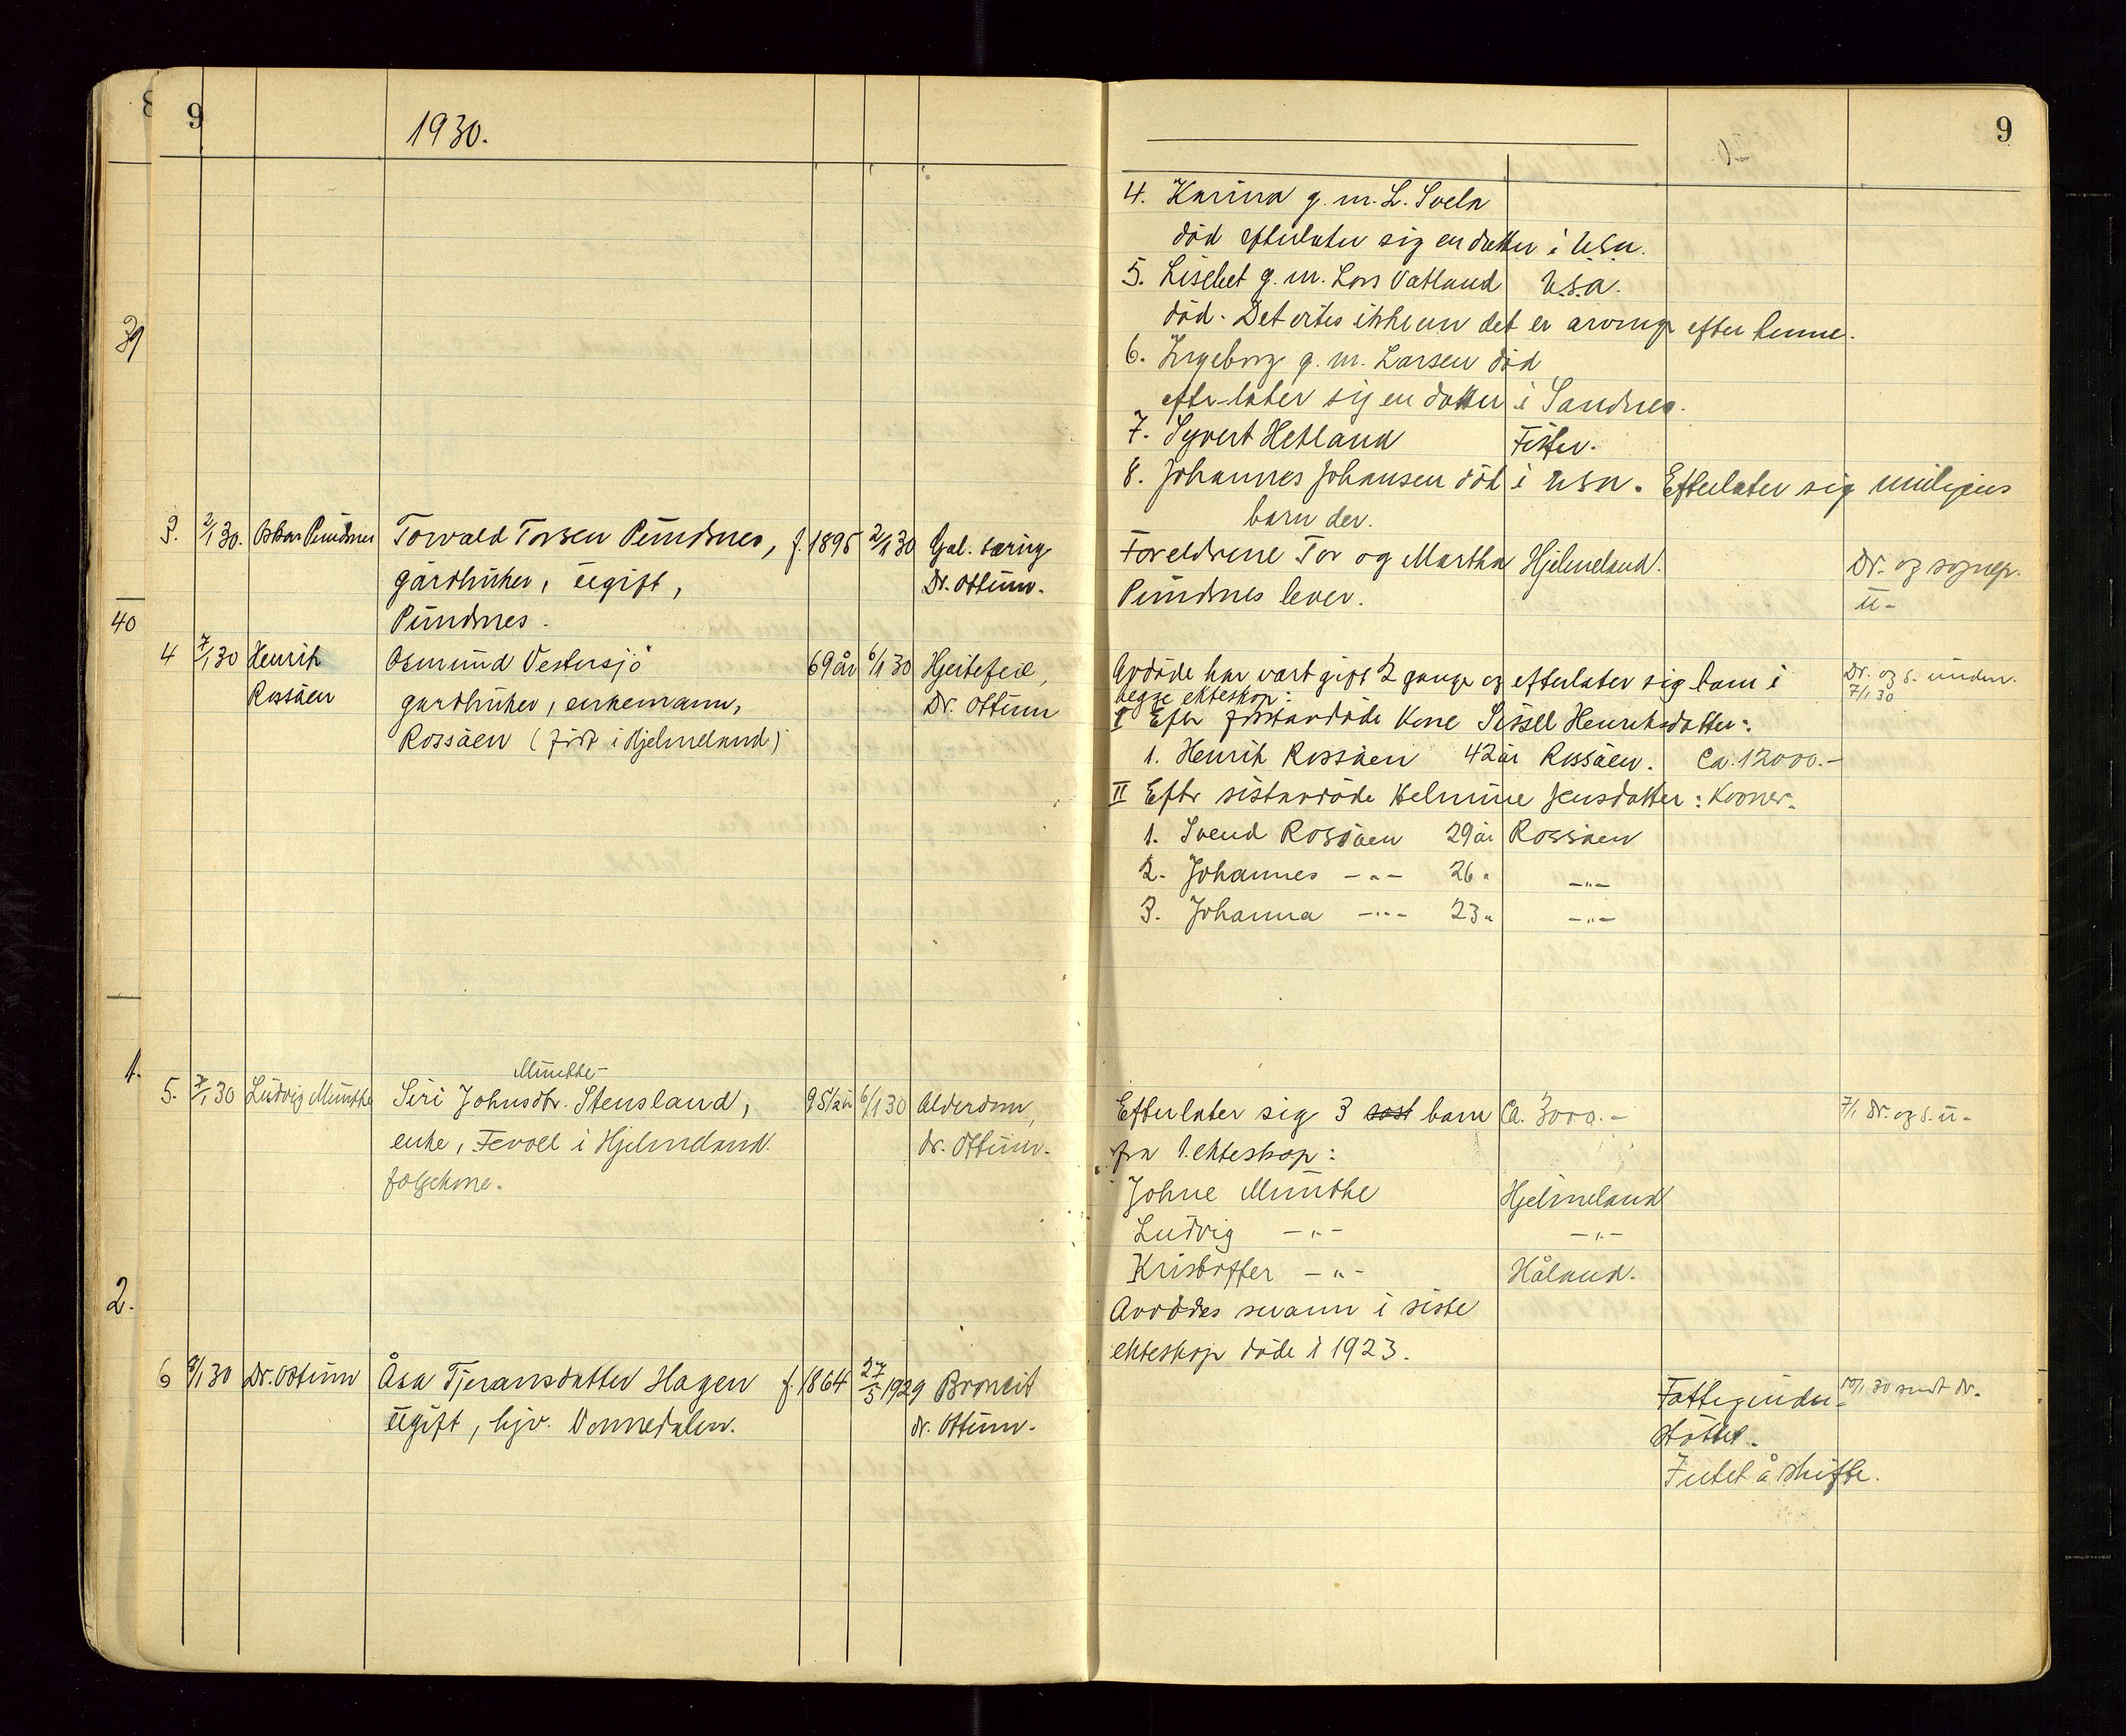 9
1930.
39
40
1.
2.
3. 2/1 30. Oskar Pundsnes Torvald Torsen Pundsnes, f. 1895 2/1 30 Gal. tæring
gårdbruker, ugift, Dr. Ottum.
Pundsnes.
4 7/1 30 Henrik Osmund Vestersjö 69 år 6/1 30 Hjertefeil,
Rossåen gardbruker, enkemann, Dr. Ottum
Rossåen (født i Hjelmeland)
Munthe
5. 7/1 30 Ludvig Munthe Siri Johnsdtr. Stensland, 95½ år 6/1 30 Alderdom,
enke, Fevoll i Hjelmeland. dr. Ottum.
følgekone.
6 8/1 30 Dr. Ottum Åsa Tjeransdatter Hagen f. 1864 27/5 1929 Broncit
ugift, hjv. Vormedalen. dr. Ottum.
9
4. Karina g. m. L. Svela
död efterlater sig en datter i USA.
5. Lisebet g. m. Lars Vatland U.S.A.
död. Det vites ikke um det er arvinger efter henne.
6. Ingeborg g. m. Larsen död
efterlater sig en datter i Sandnes.
7. Syvert Hetland Fister.
8. Johannes Johansen död i USA. Efterlater sig muligens
barn der.
Foreldrene Tor og Martha Hjelmeland. Dr. og sognep.
Pundsnes lever. u-
Avdöde har vært gift 2 ganger og efterlater sig barn i Dr. og s. under.
begge ekteskap: 7/1 30
I Efter förstavdöde kone Sissel Henriksdatter:
1. Henrik Rossåen 42 år Rossåen. Ca. 12000.-
II Efter sistavdöde Helmine Jensdatter: Koner.
1. Svend Rossåen 29 år Rossåen
2. Johannes -"- 26 " -"-
3. Johanna -"- 23 " -"-
Efterlater sig 3 barn Ca. 3000.- 7/1 dr. og s. u-
fra 1. ekteskap:
Johne Munthe Hjelmeland
Ludvig -"- -"-
Kristoffer -"- Håland.
Avdödes mann i siste
ekteskap döde i 1923.
Fattigunder- 10/1 30 sendt dr.
støttet.
Intet å skifte.